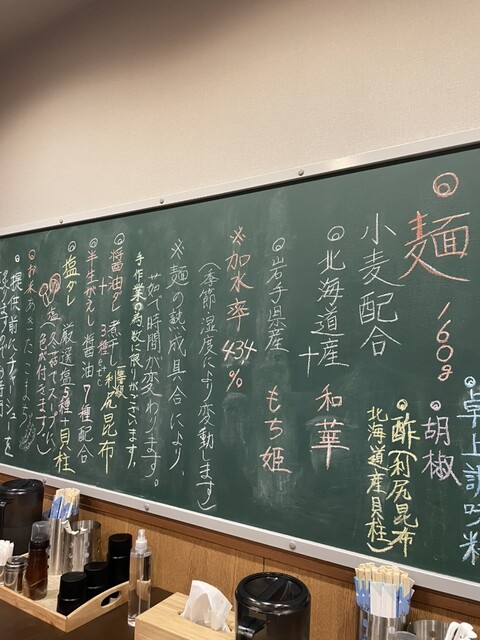 ◎麺 160g
小麦配合
◎北海道産 和華
＋
◎岩手県産 もち姫
※加水率 43.4%
(季節・湿度により変動します)
※麺の熟成具合により、
茹で時間が変わります。
手作業の為、数に限りがございます。
◎醤油ダレ 煮干し3種 利尻昆布
＋
◎半生がえし 醤油7種配合
◎塩ダレ 厳選塩5種＋貝柱
◎お米 あきたこまち
卓上調味料
・胡椒
・酢(利尻昆布
北海道産貝柱)